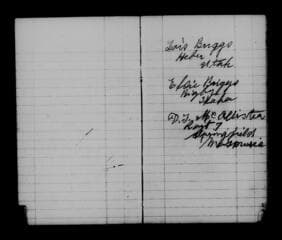 Lois Briggs
Heber
Utah
Elsie Briggs
Idaho
D. T. McAllister
Springfield
Missouri